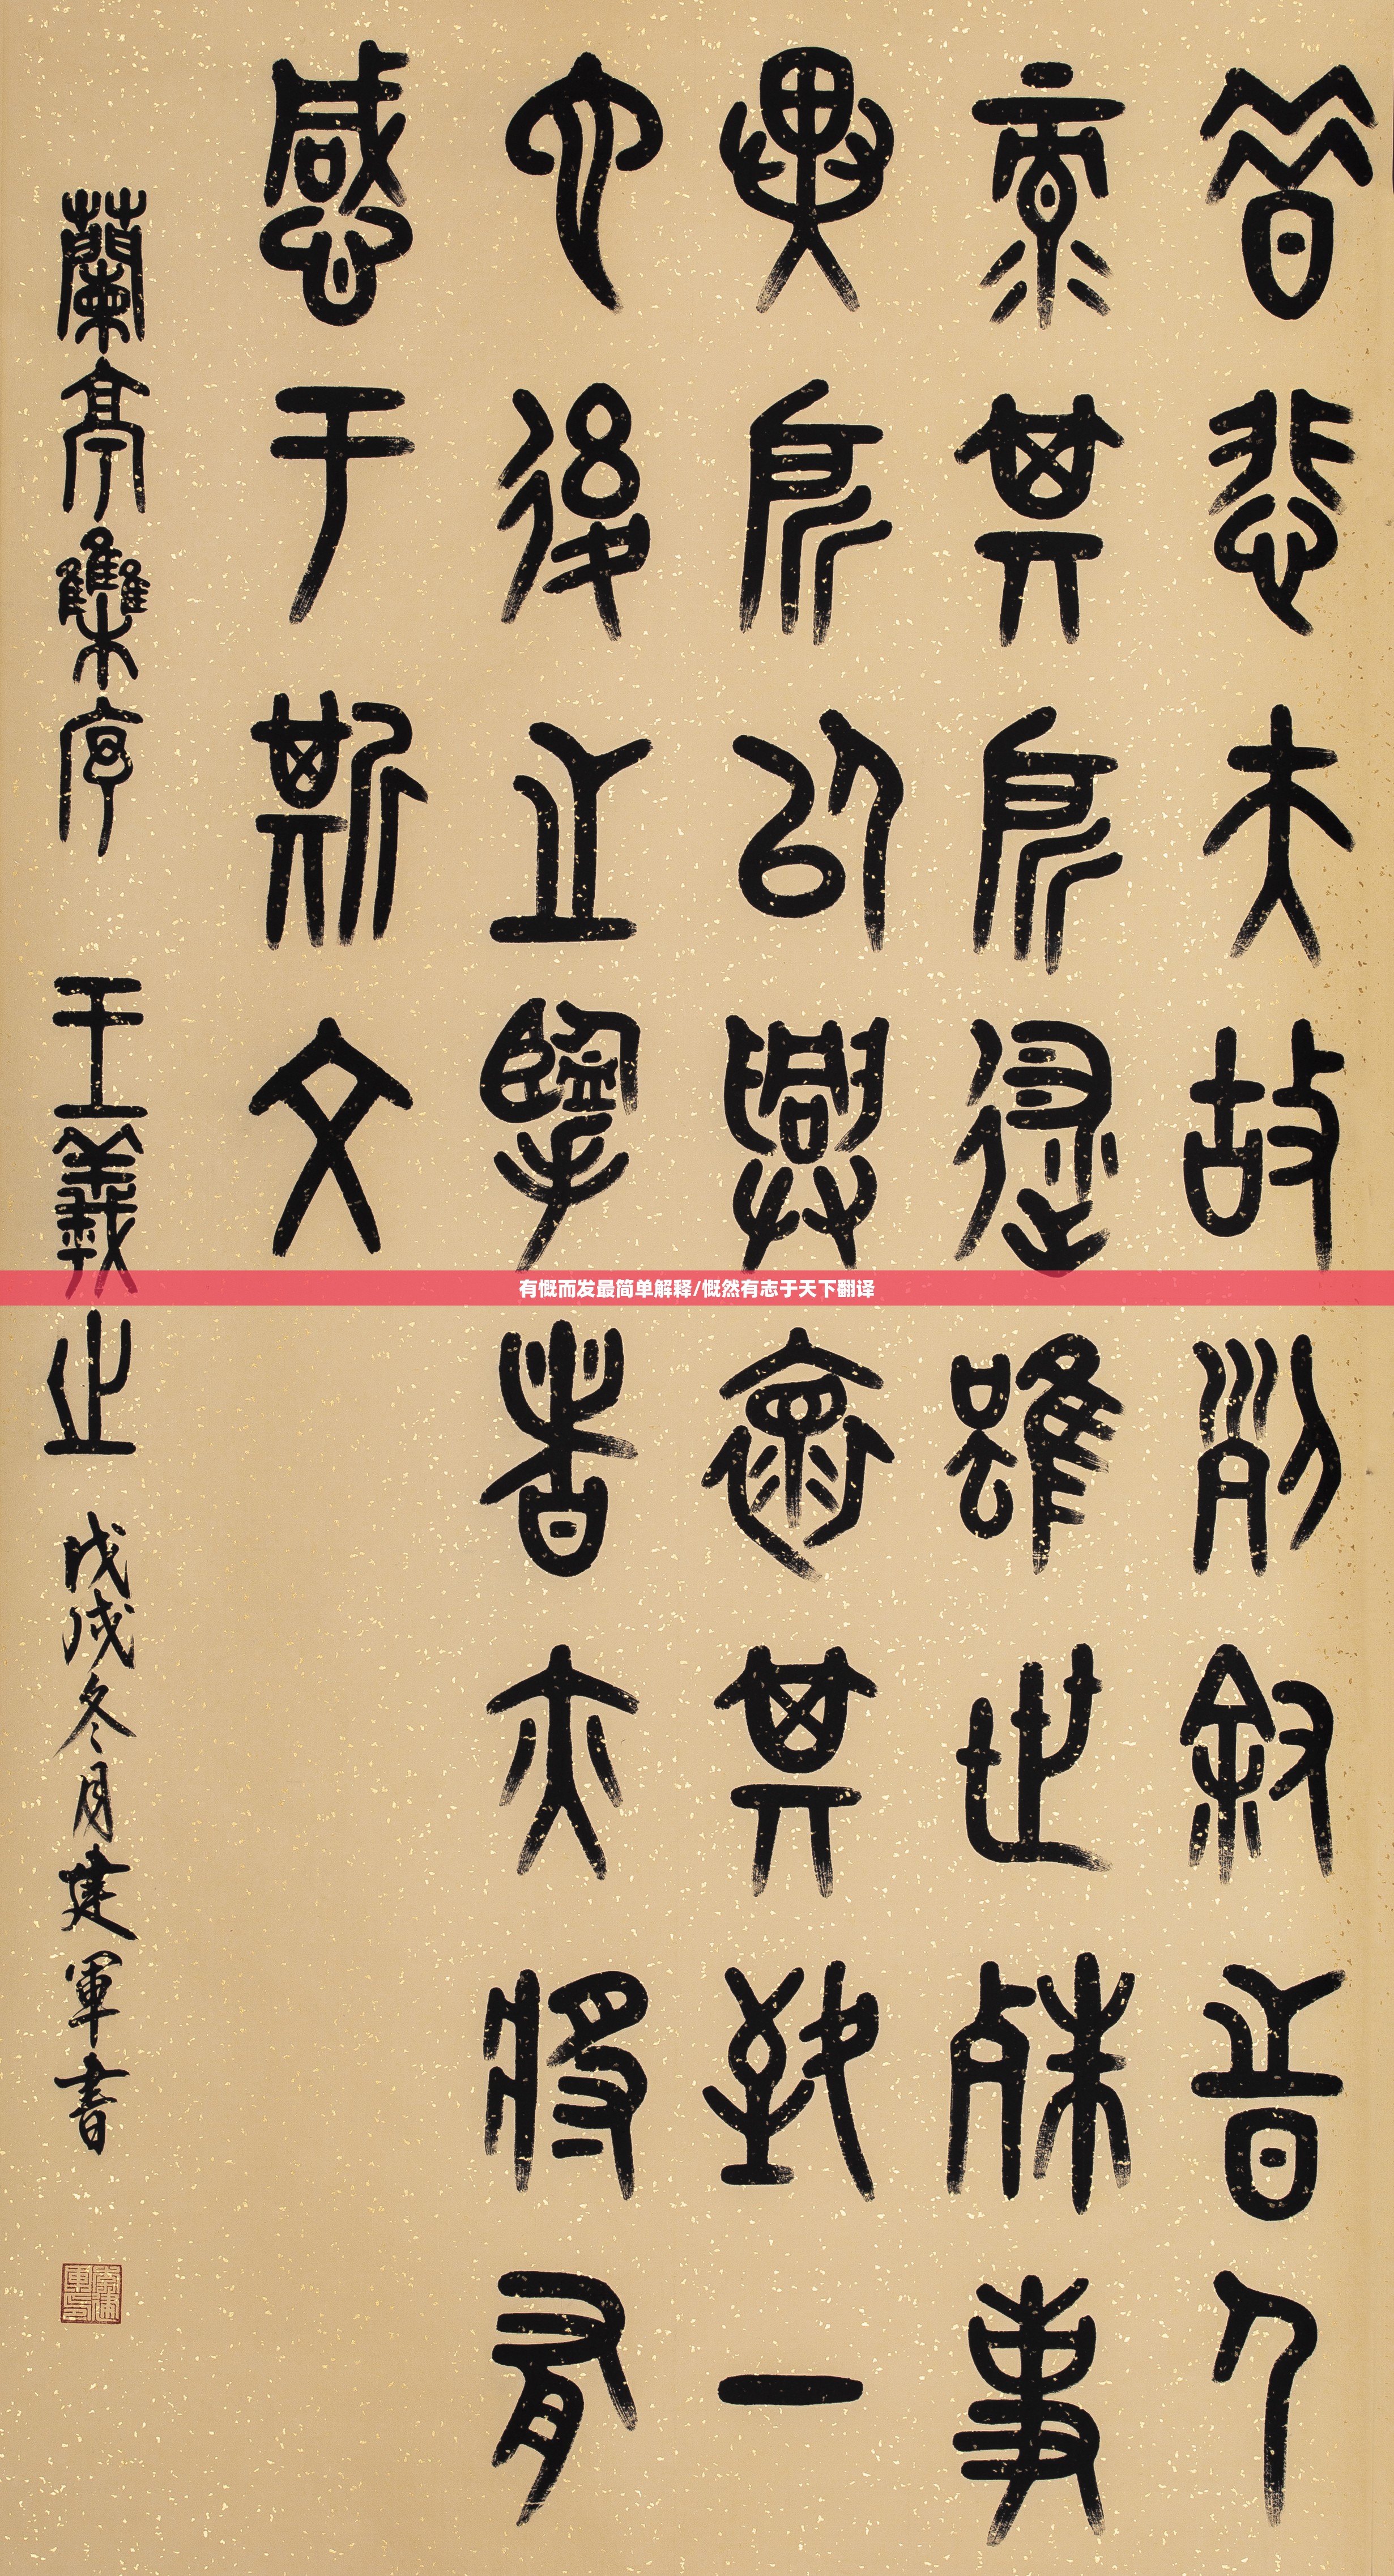 昔悲夫故列敘時人
录其所述雖世殊事
異所以興懷其致一
也後之攬者亦將有
感于斯文
蘭亭集序 王羲之 戊戌冬月建軍書
有慨而发最简单解释/慨然有志于天下翻译